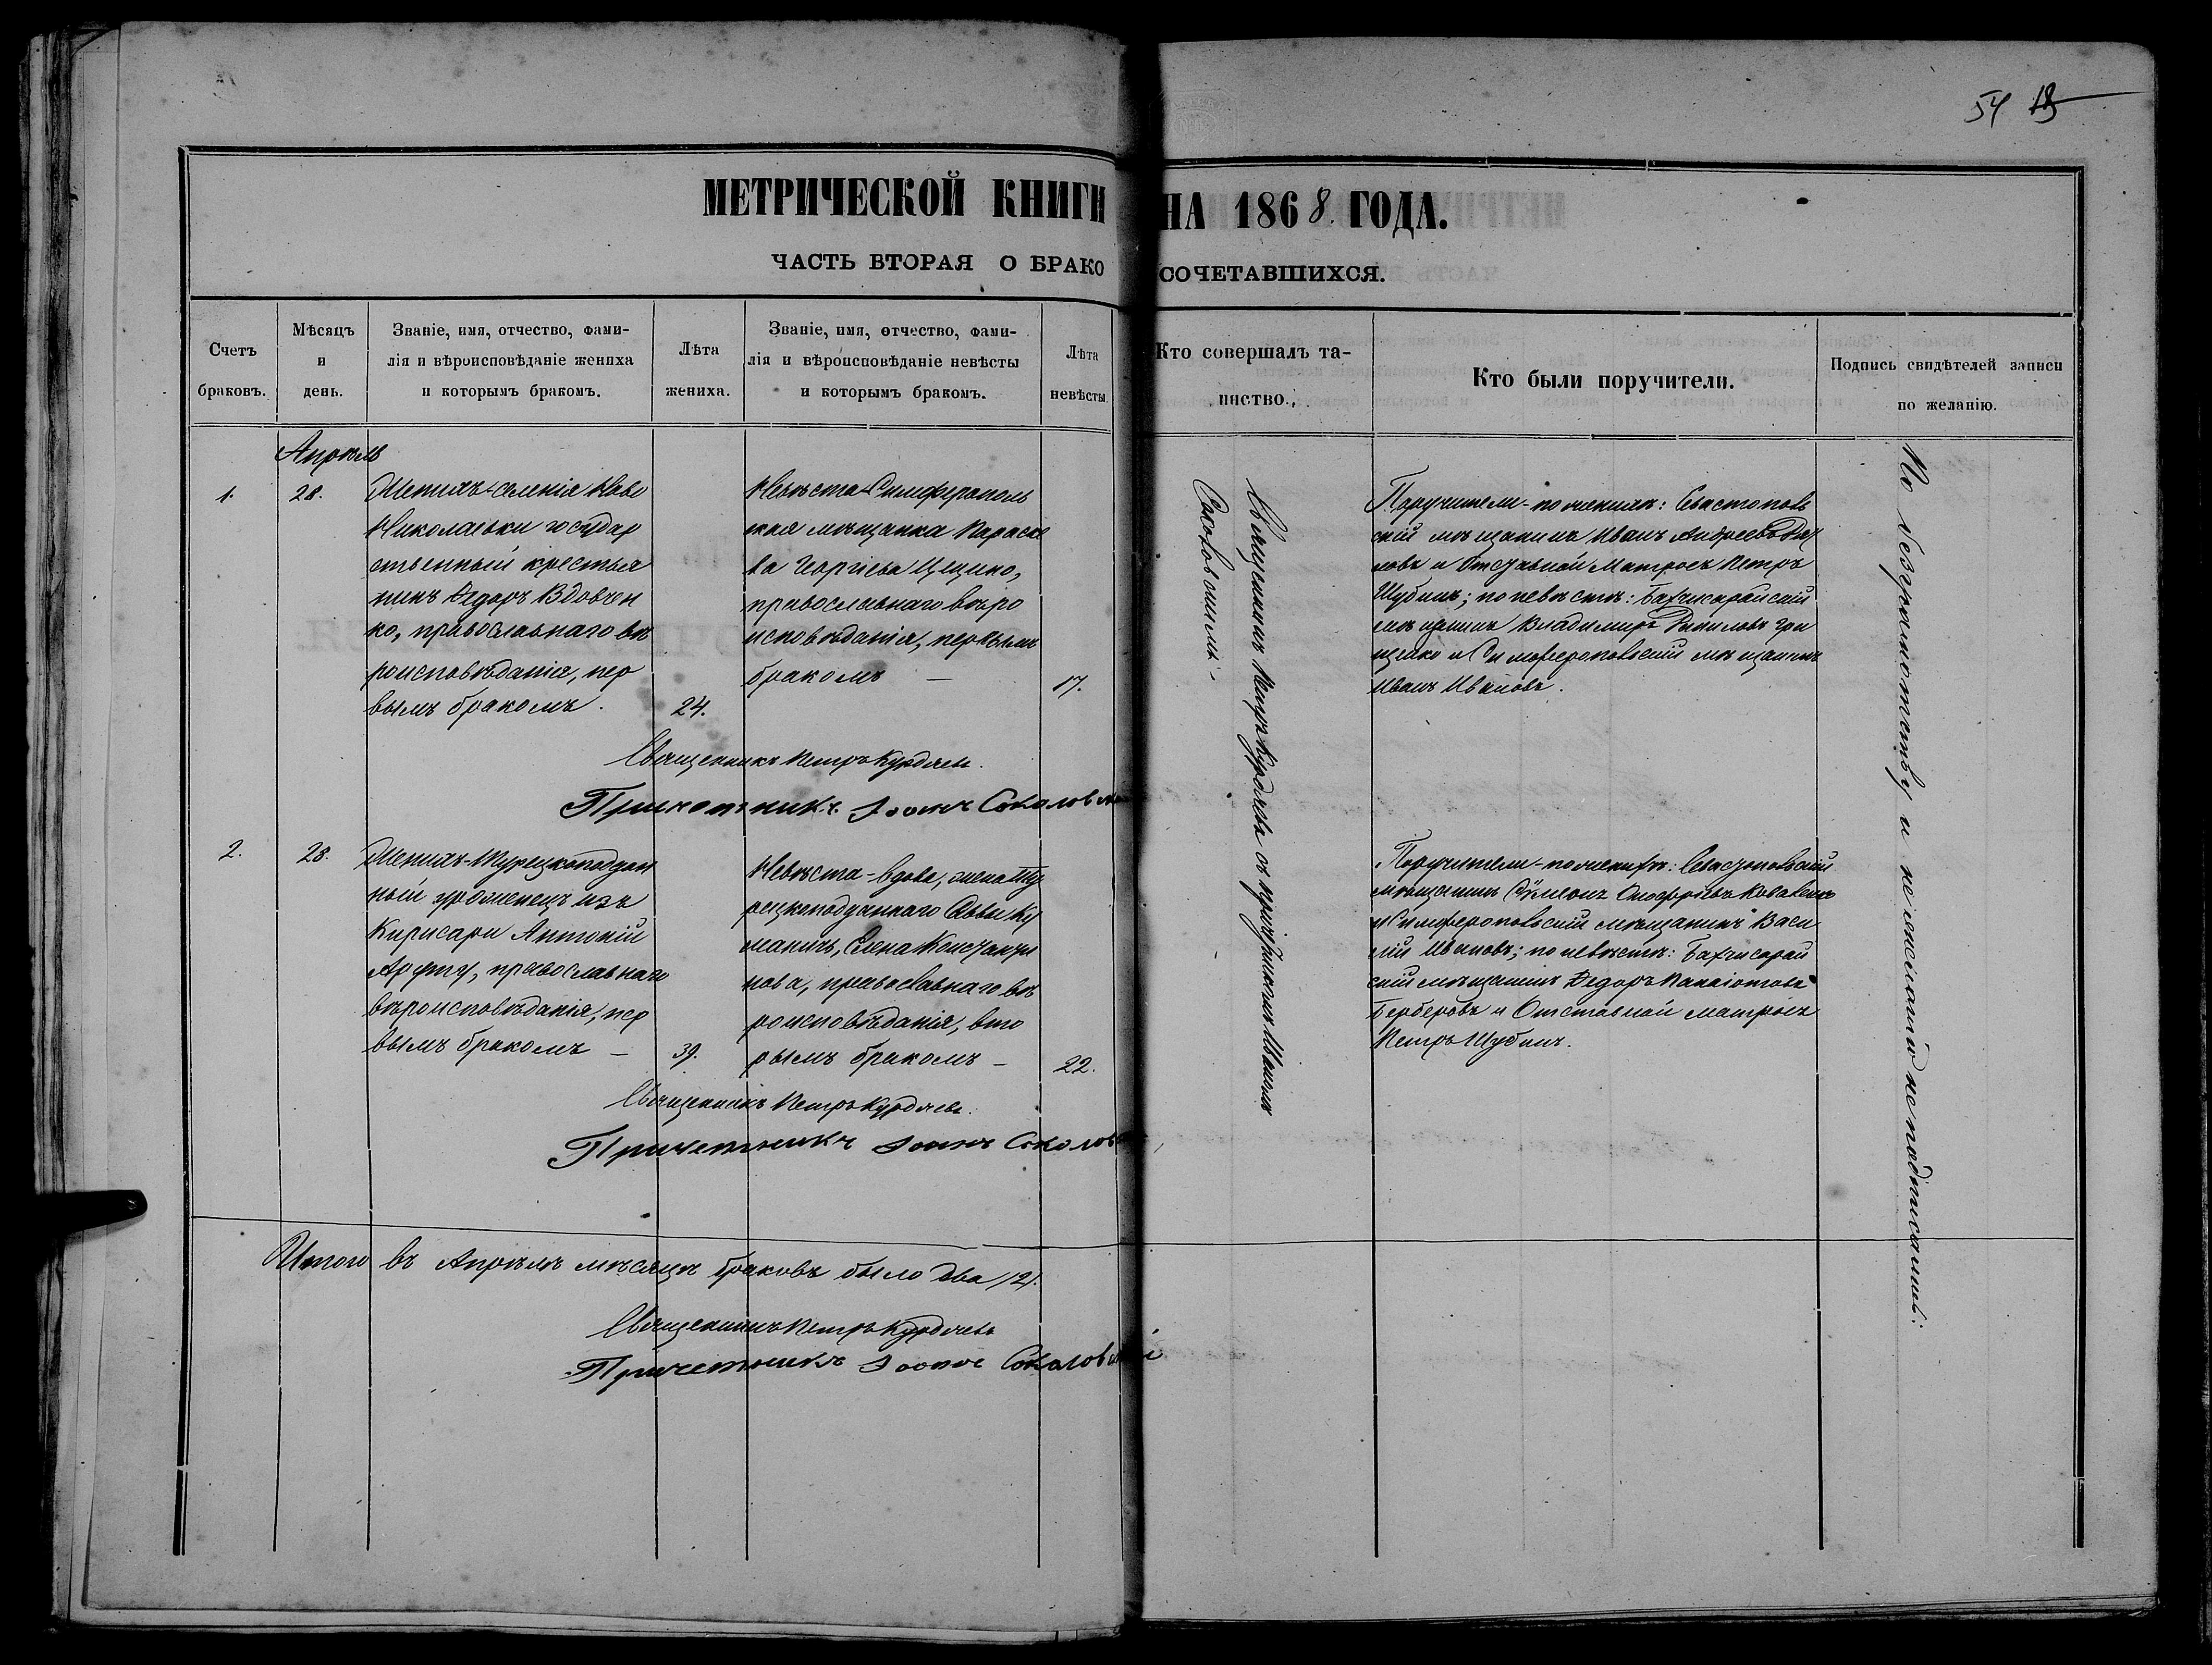 54 13
МЕТРИЧЕСКОЙ КНИГИ НА 1868. ГОДА.
ЧАСТЬ ВТОРАЯ О БРАКОСОЧЕТАВШИХСЯ.
Счетъ
браковъ.
Мѣсяцъ
и
день.
Званіе, имя, отчество, фами-
лія и вѣроисповѣданіе жениха
и которымъ бракомъ.
Лѣта
жениха.
Званіе, имя, отчество, фами-
лія и вѣроисповѣданіе невѣсты
и которымъ бракомъ.
Лѣта
невѣсты.
Кто совершалъ та-
инство.
Кто были поручители.
Подпись свидѣтелей записи
по желанію.
Апрѣль
1.
28.
Женихъ-селенія Ново
Николаевки государ
ственный крестья
нинъ Ѳедоръ Вдовчен
ко, православнаго вѣ
роисповѣданія, пер
вымъ бракомъ.
24.
Невѣста-Симферополь
ская мѣщанка Параске
ва Георгіева
православнаго вѣро
исповѣданія, первымъ
бракомъ —
17.
Священникъ Петръ Курдяевъ
Причетникъ Іоаннъ Соколовскій
Поручители-по женихѣ: Севастополь
скій мѣщанинъ Иванъ Андреевъ
и Отставной Матросъ Петръ
Шубинъ; по невѣстѣ: Бахчисарайскій
мѣщанинъ Владимиръ Даниловъ Гри
ценко и Симферопольскій мѣщанинъ
Иванъ Ивановъ.
2.
28.
Женихъ-Турецкоподдан
ный уроженецъ изъ
Кирисари Антоній
православнаго
вѣроисповѣданія, пер
вымъ бракомъ —
39.
Невѣста-вдова, жена Ту
рецкоподданнаго Саввы Ку
маничъ, Елена Константи
нова, православнаго вѣ
роисповѣданія, вто
рымъ бракомъ —
22.
Священникъ Петръ Курдяевъ.
Причетникъ Іоаннъ Соколовскій
Поручители-по женихѣ: Севастопольскій
мѣщанинъ Сѵмеонъ Онофріевъ
и Симферопольскій мѣщанинъ Васи
лій Ивановъ; по невѣстѣ: Бахчисарай
скій мѣщанинъ Ѳедоръ Панаіотовъ
Берберовъ и Отставной матросъ
Петръ Шубинъ.
Священникъ Петръ Курдяевъ съ причетникомъ Иваномъ
Соколовскимъ.
По безграмотству и не желанію не подписались.
Итого въ Апрѣлѣ мѣсяцѣ браковъ было два /2/.
Священникъ Петръ Курдяевъ
Причетникъ Іоаннъ Соколовскій